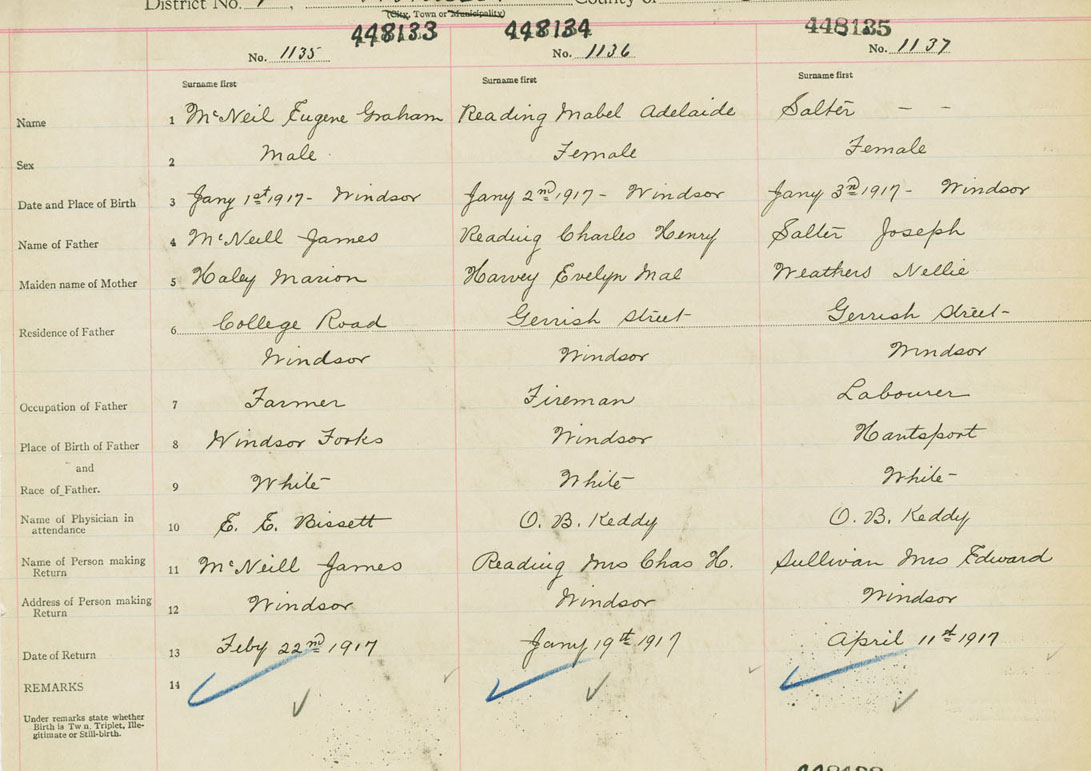 District No. County of
(City, Town or Municipality)
448133 448134 448135
No. 1135 No. 1136 No. 1137
Surname first Surname first Surname first
Name 1 McNeil Eugene Graham Reading Mabel Adelaide Salter — —
Sex 2 Male Female Female
Date and Place of Birth 3 Jany 1st 1917 - Windsor Jany 2nd 1917 - Windsor Jany 3rd 1917 - Windsor
Name of Father 4 McNeill James Reading Charles Henry Salter Joseph
Maiden name of Mother 5 Haley Marion Harvey Evelyn Mae Weathers Nellie
Residence of Father 6 College Road Gerrish Street Gerrish Street
Windsor Windsor Windsor
Occupation of Father 7 Farmer Fireman Labourer
Place of Birth of Father 8 Windsor Forks Windsor Hantsport
and
Race of Father. 9 White White White
Name of Physician in attendance 10 E. E. Bissett O. B. Keddy O. B. Keddy
Name of Person making Return 11 McNeill James Reading Mrs Chas H. Sullivan Mrs Edward
Address of Person making Return 12 Windsor Windsor Windsor
Date of Return 13 Feby 22nd 1917 Jany 19th 1917 April 11th 1917
REMARKS 14
Under remarks state whether
Birth is Twn, Triplet, Ille-
gitimate or Still-birth.